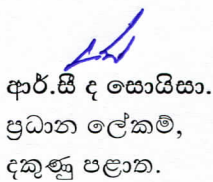 ආර්.සී ද සොයිසා.
ප්‍රධාන ලේකම්,
දකුණු පළාත.